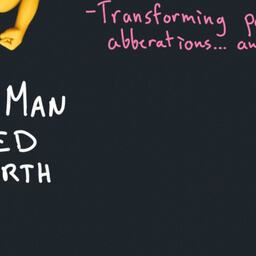 -Transforming
abberations...
MAN
ED
RTH